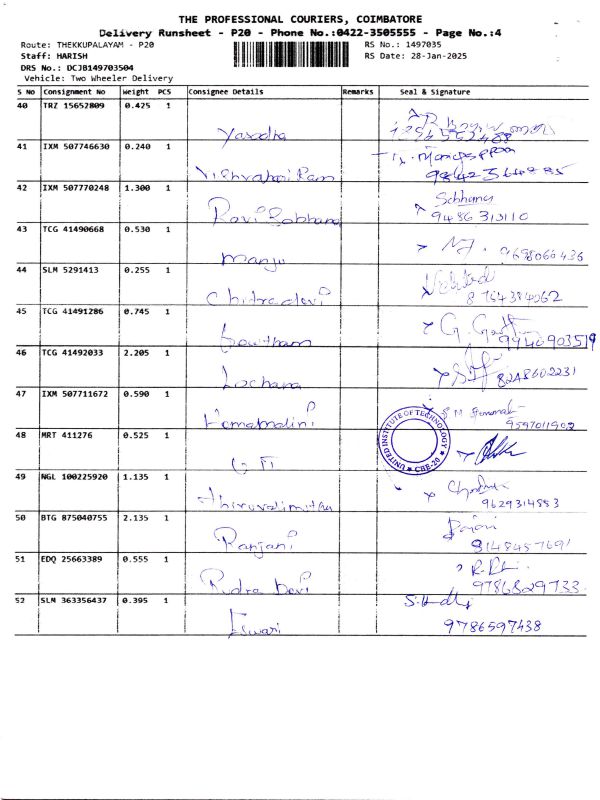 THE PROFESSIONAL COURIERS, COIMBATORE
Delivery Runsheet - P20 - Phone No.:0422-3505555 - Page No.:4
Route: THEKKUPALAYAM - P20 RS No.: 1497035
Staff: HARISH RS Date: 28-Jan-2025
DRS No.: DCJB149703504
Vehicle: Two Wheeler Delivery
S No Consignment No Weight PCS Consignee Details Remarks Seal & Signature
40 TRZ 15652809 0.425 1
Yasodha
41 IXM 507746630 0.240 1
42 IXM 507770248 1.300 1
9486313110
43 TCG 41490668 0.530 1
Manju 9698066436
44 SLM 5291413 0.255 1
Chitradevi 8764384062
45 TCG 41491286 0.745 1
Gowtham 9940903519
46 TCG 41492033 2.205 1
Lochana 82A8602231
47 IXM 507711672 0.590 1
Hemamalini 9597011902
48 MRT 411276 0.525 1
UNITED INSTITUTE OF TECHNOLOGY ★ CBE-20 ★
49 NGL 100225920 1.135 1
9629314883
50 BTG 875040755 2.135 1
Ranjani 8148457691
51 EDQ 25663389 0.555 1
Rudra Devi 9786829733
52 SLM 363356437 0.395 1
Eswari 9786597438